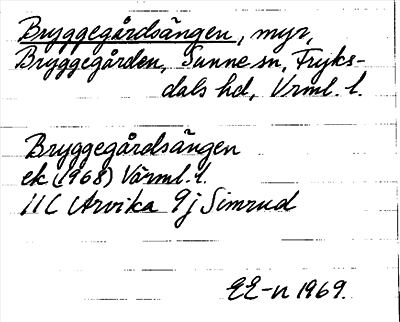 Bryggegårdsängen, myr,
Bryggegården, Sunne sn, Fryks-
dals hd, Vrml. l.
Bryggegårdsängen
ek (1968) Värml. l.
11C Arvika 9j Simrud
EE-n 1969.